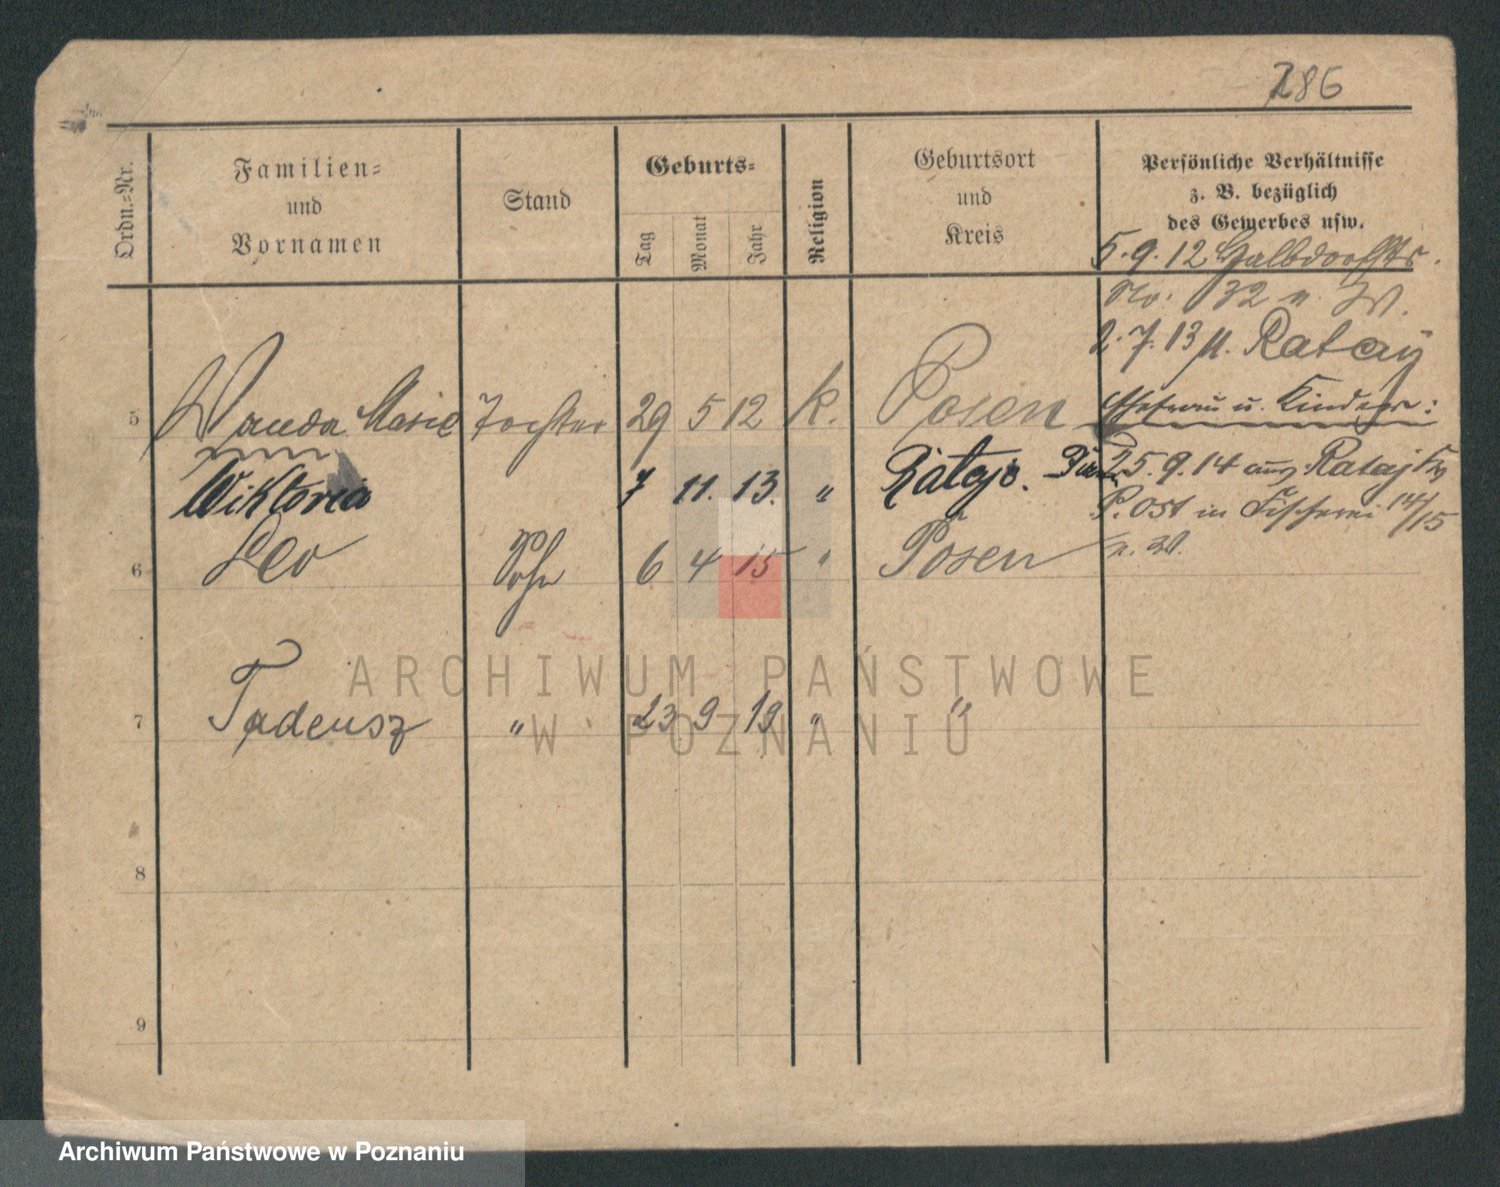 186
Ordn.=Nr.
Familien=
und
Vornamen
Stand
Geburts=
Tag
Monat
Jahr
Religion
Geburtsort
und
Kreis
Persönliche Verhältnisse
z. B. bezüglich
des Gewerbes usw.
5.9.12 Halbdorfstr.
No. 32 n. W.
2.7.13 n. Rataj
5 Wanda Marie Tochter 29 5 12 k. Posen
Ehefrau u. Kinder:
Wiktoria 7 11. 13. " Rataje.
25.9.14 aus Rataj
P. Ost in Fischerei 14/15
n. W.
6 Leo Sohn 6 4 15 " Posen
7 Tadeusz " 23 9 19 " "
8
9
ARCHIWUM PAŃSTWOWE
W POZNANIU
Archiwum Państwowe w Poznaniu